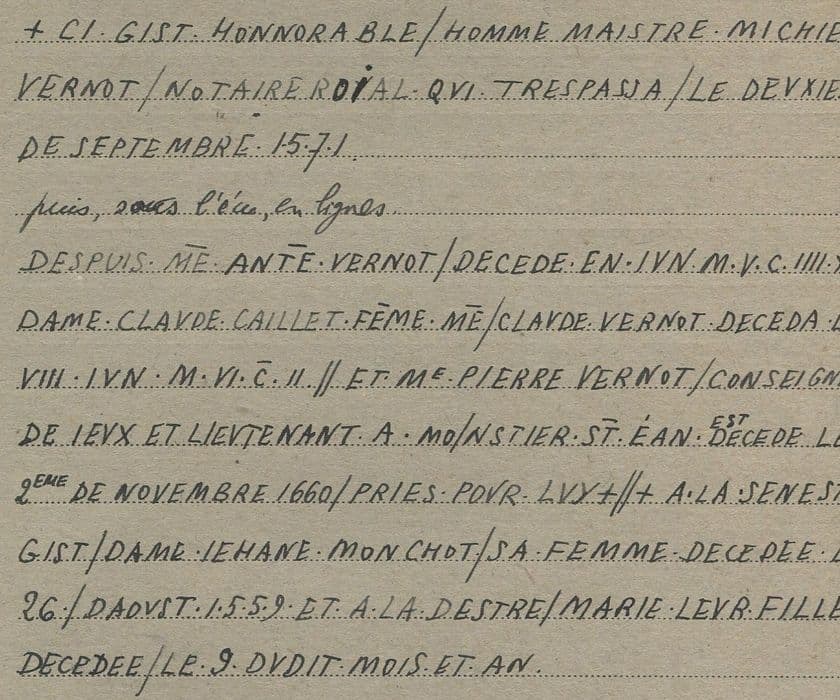 + CI · GIST · HONNORABLE/HOMME MAISTRE · MICHIE
VERNOT/NOTAIRE ROIAL · QVI · TRESPASSA/LE DEVXIE
DE SEPTEMBRE · 1·5·7·1.
puis, sous l'écu, en lignes
DESPUIS · M̄E · ANT̄E · VERNOT/DECEDE · EN · IVN · M · V · C · IIII · X
DAME · CLAVDE · CAILLET · FĒME · MĒ/CLAVDE · VERNOT · DECEDA · L
VIII · IVN · M · VI · C̄ · II // ET · Mᴱ · PIERRE VERNOT/CONSEIGN
DE IEVX ET LIEVTENANT · A · MO/NSTIER · S̄T · ÉAN · EST DECEDE LE
2EME DE NOVEMBRE 1660/PRIES · POVR · LVY+//+ A · LA · SENEST
GIST/DAME · IEHANE · MONCHOT/SA · FEMME · DECEDEE · L
26·/DAOVST · 1·5·5·9 · ET · A · LA · DESTRE/MARIE · LEVR · FILLE
DECEDEE/LE · 9 · DVDIT · MOIS · ET · AN.